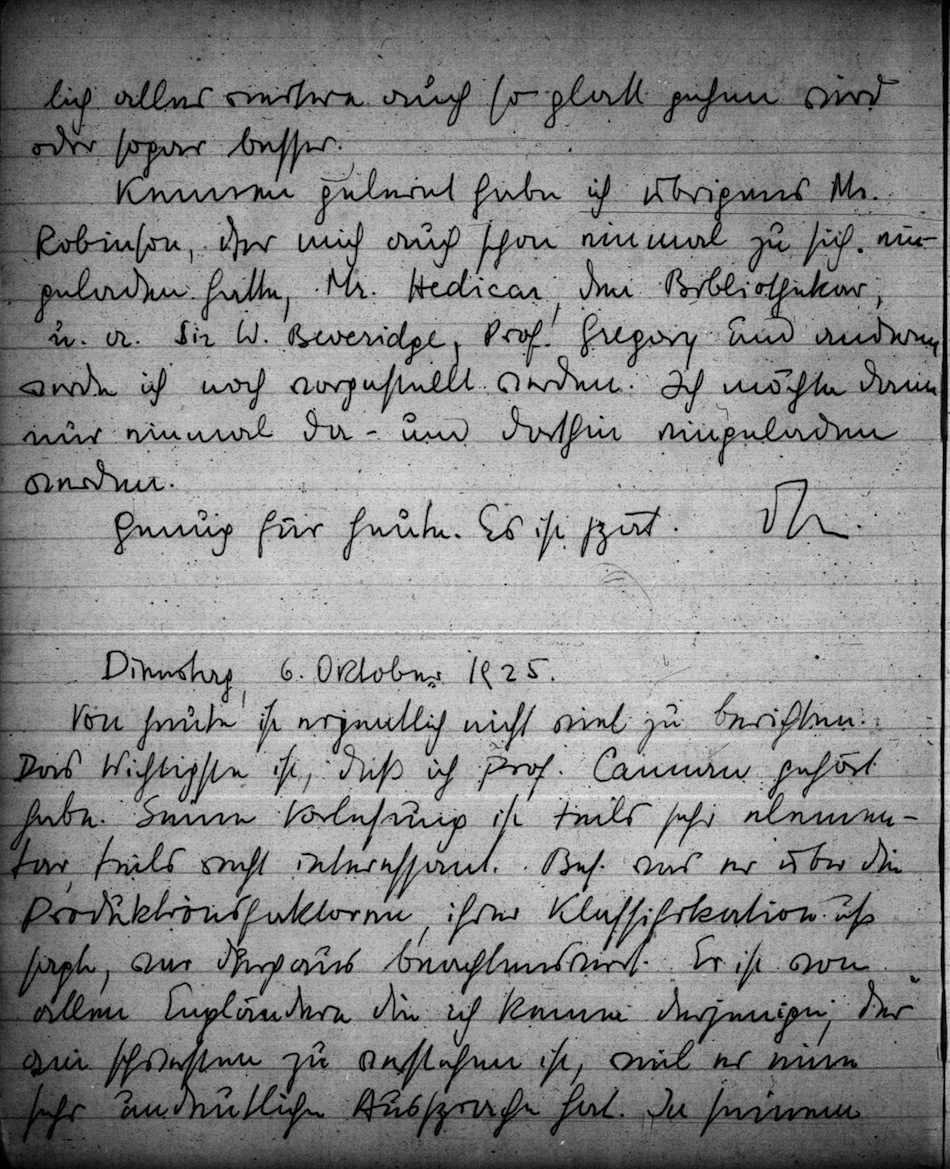 lich alles weitere auch so glatt gehen wird
oder sogar besser.
Kennen gelernt habe ich übrigens Mr.
Robinson, der mich auch schon einmal zu sich ein-
geladen hatte, Mr. Hedicar, den Bibliothekar,
u. a. Sir W. Beveridge, Prof. Gregory und anderen
werde ich noch vorgestellt werden. Ich möchte dann
nur einmal da- und dorthin eingeladen
werden.
Genug für heute. Es ist spät.
Dienstag, 6. Oktober 1925.
Von heute ist eigentlich nicht viel zu berichten.
Das Wichtigste ist, daß ich Prof. Cannan gehört
habe. Seine Vorlesung ist teils sehr elemen-
tar, teils recht interessant. Bes. was er über die
Produktionsfaktoren, ihrer Klassifikation usf
sagte, war durchaus beachtenswert. Er ist von
allen Engländern die ich kenne derjenige, der
am schwersten zu verstehen ist, weil er eine
sehr undeutliche Aussprache hat. In seinem